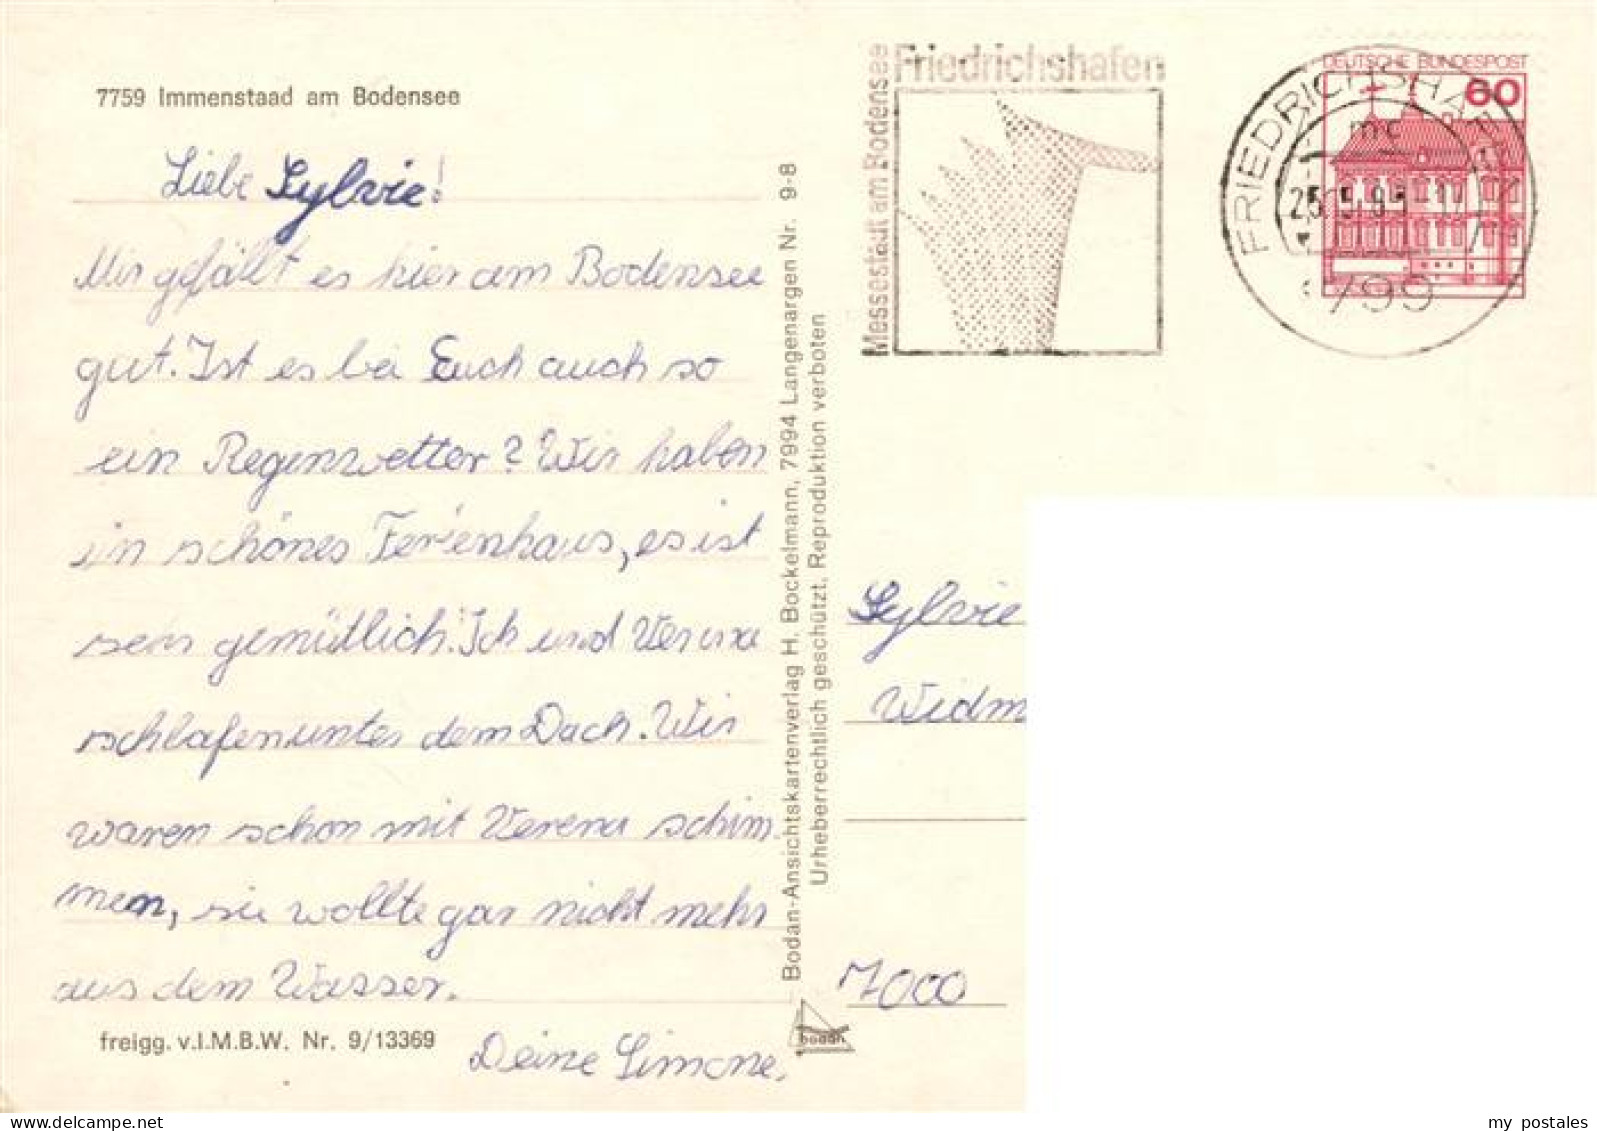 7759 Immenstaad am Bodensee
Liebe Sylvie!
Mir gefällt es hier am Bodensee
gut. Ist es bei Euch auch so
ein Regenwetter? Wir haben
ein schönes Ferienhaus, es ist
sehr gemütlich. Ich und Verena
schlafen unter dem Dach. Wir
waren schon mit Verena schim
men, sie wollte gar nicht mehr
aus dem Wasser.
Deine Simone.
freigg. v.I.M.B.W. Nr. 9/13369
Bodan-Ansichtskartenverlag H. Bockelmann, 7994 Langenargen Nr. 9-8
Urheberrechtlich geschützt. Reproduktion verboten
bodan
Friedrichshafen
Messestadt am Bodensee
DEUTSCHE BUNDESPOST
60
FRIEDRICHSHAFEN
mc
799
Sylvie
Widm
7000
my postales